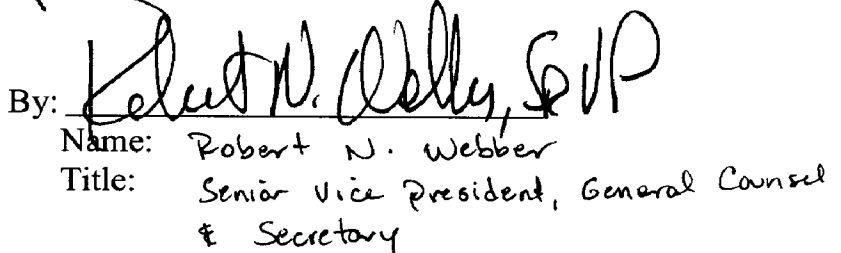 By: Robert N. Webber, SVP
Name: Robert N. Webber
Title: Senior Vice President, General Counsel
& Secretary